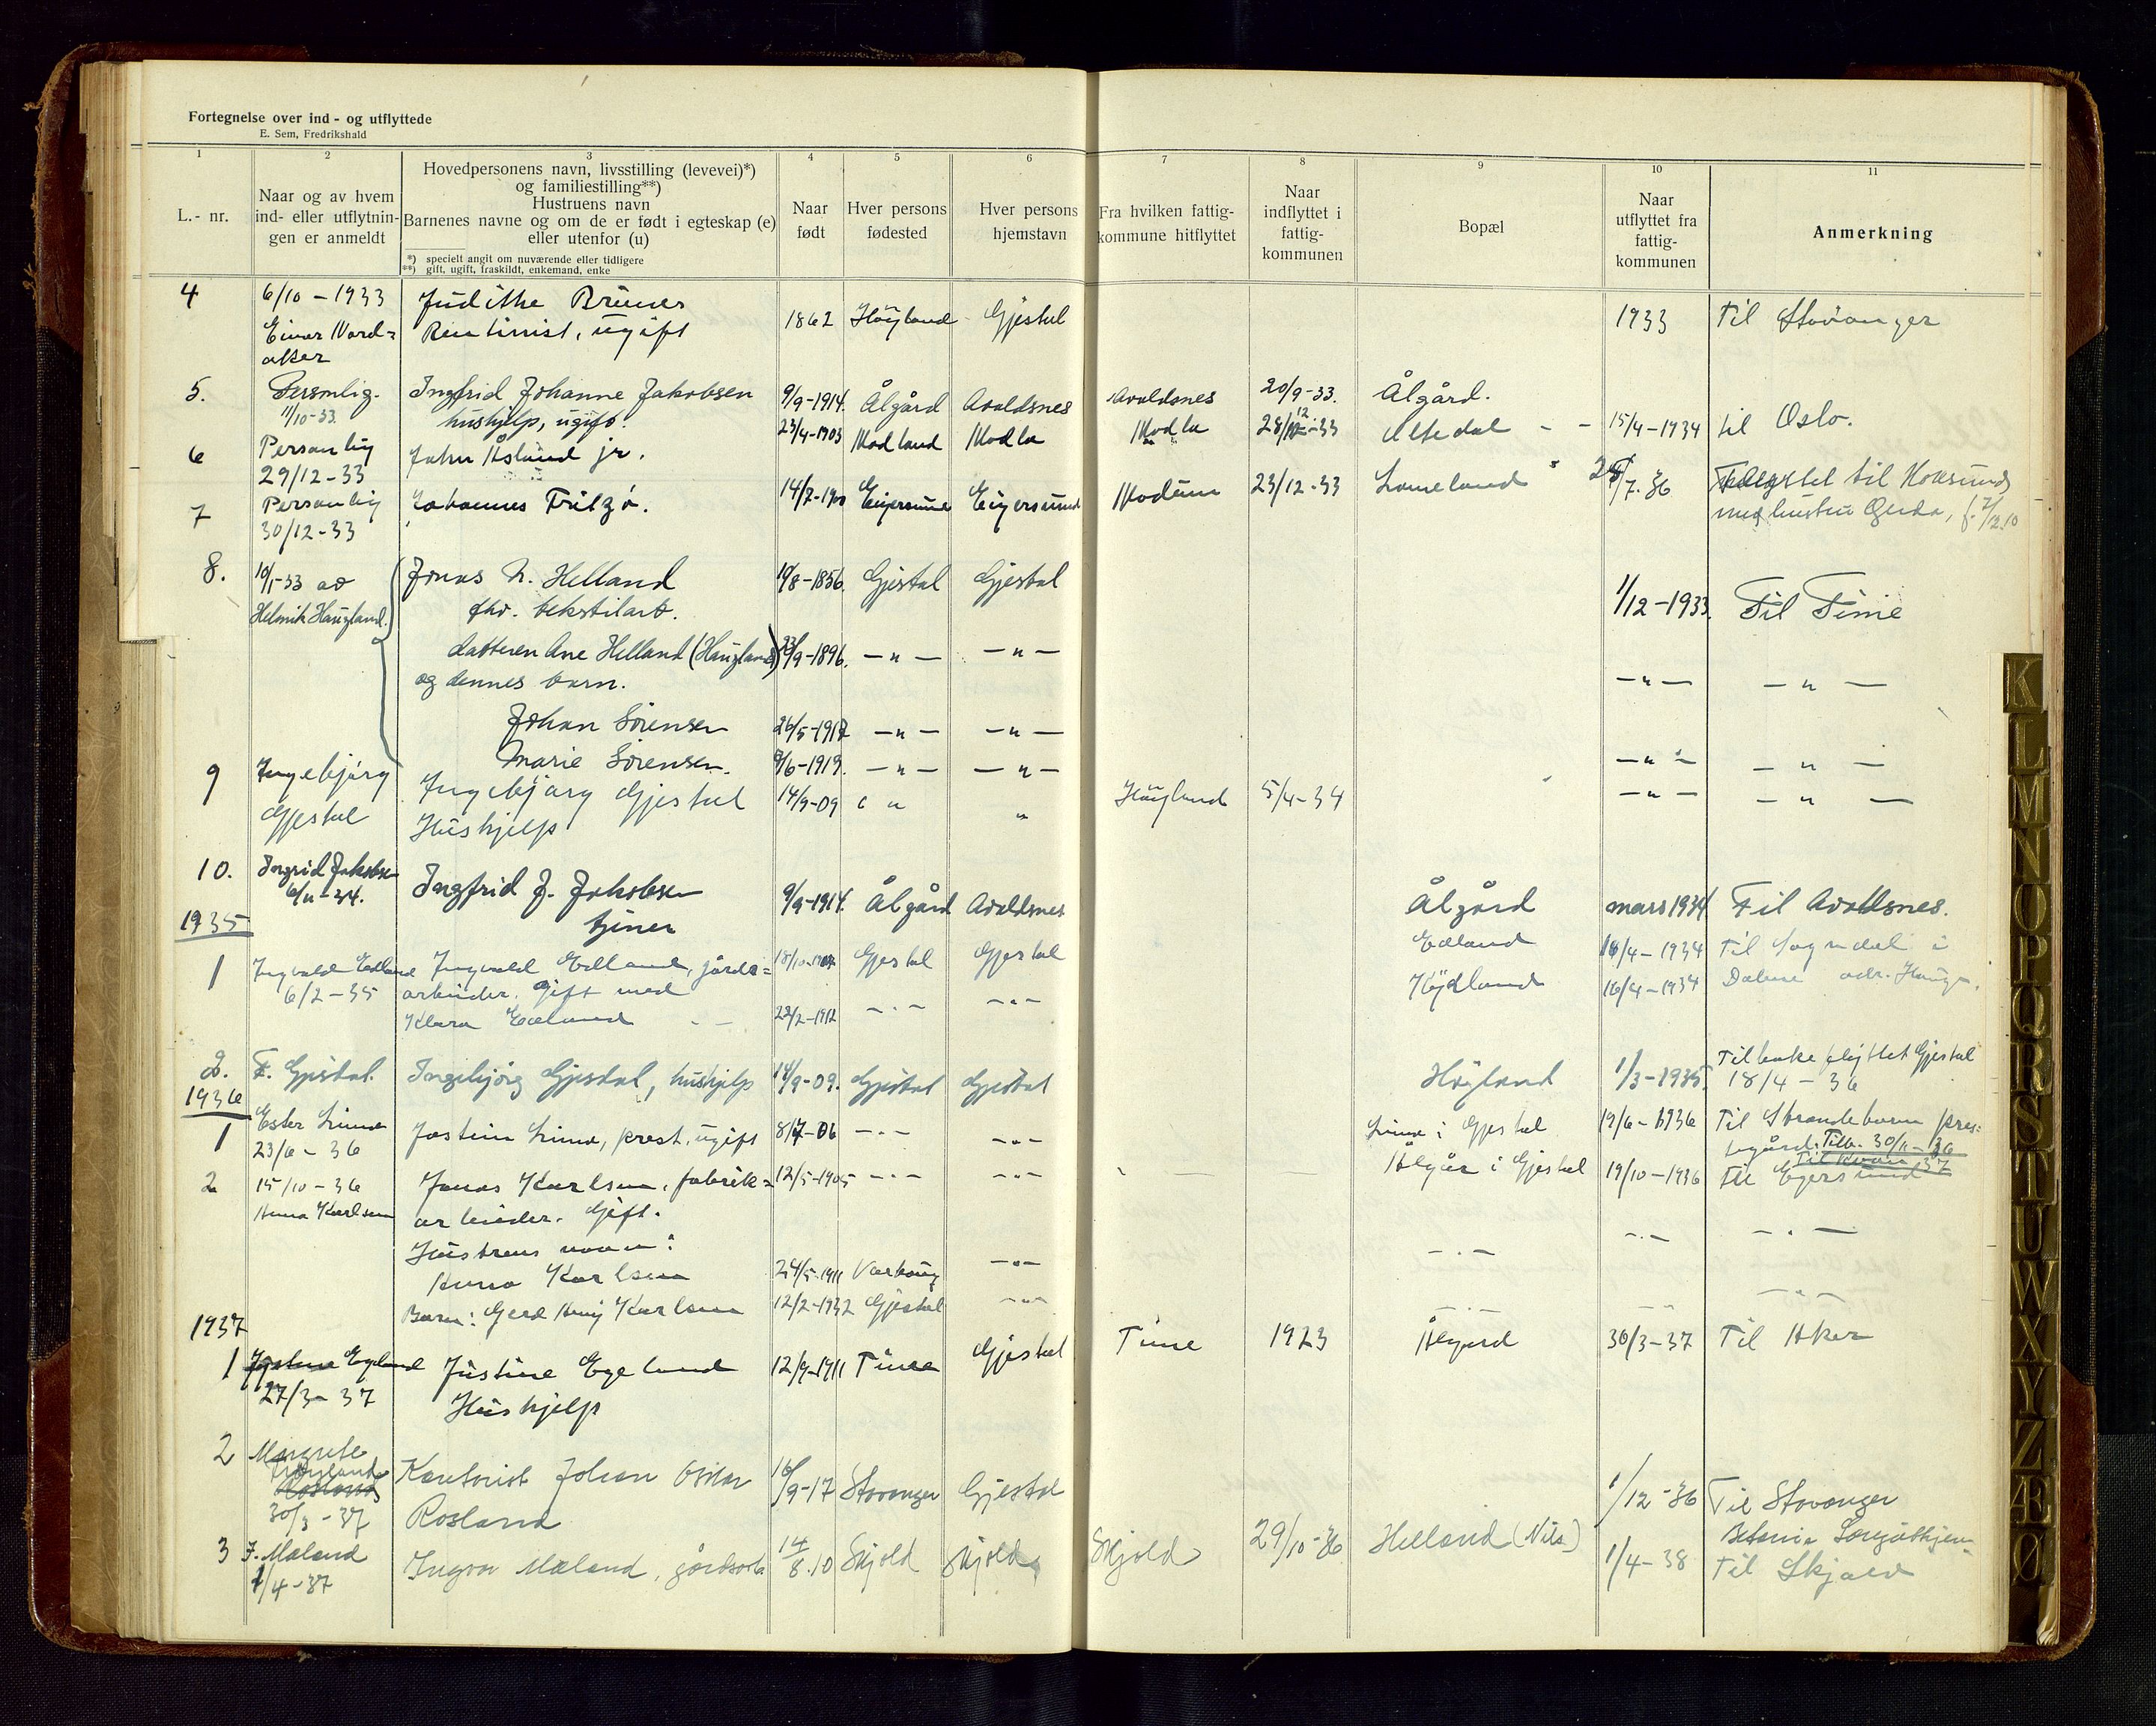 Fortegnelse over ind- og utflyttede
E. Sem, Fredrikshald
1 2 3 4 5 6 7 8 9 10 11
L.- nr.
Naar og av hvem
ind- eller utflytnin-
gen er anmeldt
Hovedpersonens navn, livsstilling (levevei)*)
og familiestilling**)
Hustruens navn
Barnenes navne og om de er født i egteskap (e)
eller utenfor (u)
*) specielt angit om nuværende eller tidligere
**) gift, ugift, fraskildt, enkemand, enke
Naar
født
Hver persons
fødested
Hver persons
hjemstavn
Fra hvilken fattig-
kommune hitflyttet
Naar
indflyttet i
fattig-
kommunen
Bopæl
Naar
utflyttet fra
fattig-
kommunen
Anmerkning
4 6/10 - 1933 Judithe
Einar Nord= Rentinist, ugift 1862 Høyland Gjestal 1933 Til Stavanger
aker
5. Personlig. Ingfrid Johanne Jakobsen 9/9-1914. Ålgård Avaldsnes Avaldsnes 20/9-33. Ålgård.
11/10-33. hushjelp, ugift.
6 Personlig John Åsland jr. 23/4-1903 Madland Madla Madla 28/12-33 Oltedal - - 15/4-1934 til Oslo.
29/12-33
7 Personlig Johannes 14/7-19 Eigersund Eigersund Modum 23/12-33 /7-36 til Hoksund
30/12-33 med hustru Gerda, f. 7/12.10
8. 10/1-33 av Jonas N. Helland 10/8-1856. Gjestal Gjestal 1/12-1933. Til Time
Helmik Haugland. fhv. tekstilarb.
datteren Ane Helland (Haugland) 23/9-1896. -"- -"- -"- -"-
og dennes barn.
Johan Sørensen 26/5-1917 -"- -"-
Marie Sørensen. 9/6-1919. -"- -"- -"- -"-
9 Ingebjørg Ingebjørg Gjestal 14/9-09 " " Høyland 5/4-34 -"- -"-
Gjestal Hushjelp
10. Ingrid Jakobsen Ingfrid J. Jakobsen 9/9-1914. Ålgård Avaldsnes Ålgård mars 1934 Til Avaldsnes.
6/11-34. tjener
1935
1 Ingvald Edland Ingvald Edland, gårds= 18/10-1907 Gjestal Gjestal Edland 16/4-1934 Til Sogndal i
6/2-35 arbeider. Gift med Kydland 16/4-1934 Dalane adr. Hauge.
Klara Edland 22/2-1912 -"- -"-
2. F. Gjesdal. Ingebjørg Gjesdal, hushjelp 14/9-09. Gjestal Gjestal Høyland 1/3-1935. Tilbake flyttet Gjestal
18/4 - 36
1936
1 Ester Lima Jostein Lima, prest, ugift 8/7-06 -"- -"- Lima i Gjestal 19/6-1936 Til Strandebarm pres=
23/6 - 36 tegård. Tilb. 30/11-36
2 15/10 - 36 Jonas Karlsen, fabrik= 12/5-1905 -"- -"- Ålgår i Gjestal 19/10-1936 til Egersund
Anna Karlsen arbeider. Gift.
Hustrens navn:
Anna Karlsen 24/5-1911 Varhaug -"- -"- -"- -"-
Barn: Gerd Karlsen 12/2-1932 Gjestal -"- -"- -"- -"-
1937
1 Justine Egeland Justine Egeland 12/9-1911 Time Gjestal Time 1923 Ålgård 30/3-37 Til Aker
27/3-37 Hushjelp
2 Margrete Kontorist Johan Oskar 16/9-17 Stavanger Gjestal 1/12-36 Til Stavanger
Rosland
30/3-37 Betania
3 J. Mæland Ingvar Mæland, gårdsarb 14/8.10 Skjold Skjold Skjold 29/10-36 Helland (Nils) 1/4-38 Til Skjold
1/4-37
K
L
M
N
O
P
Q
R
S
T
U
W
X
Y
Z
Æ
Ø